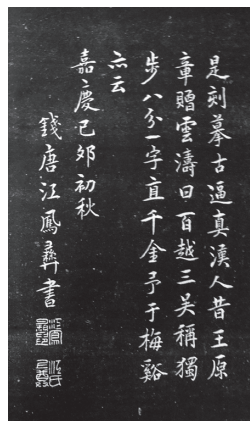 是刻摹古逼真漢人昔王原
章贈雲濤曰百越三吴稱獨
步八分一字直千金予于梅谿
亦云
嘉慶己卯初秋
錢唐江鳳彝書